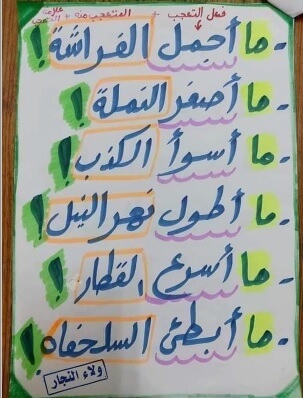 فعل التعجب + المتعجب منه + علامة التعجب
- ما أجمل الفراشة!
- ما أصغر النملة!
- ما أسوأ الكذب!
- ما أطول نهر النيل!
- ما أسرع القطار!
- ما أبطئ السلحفاه!
ولاء النجار